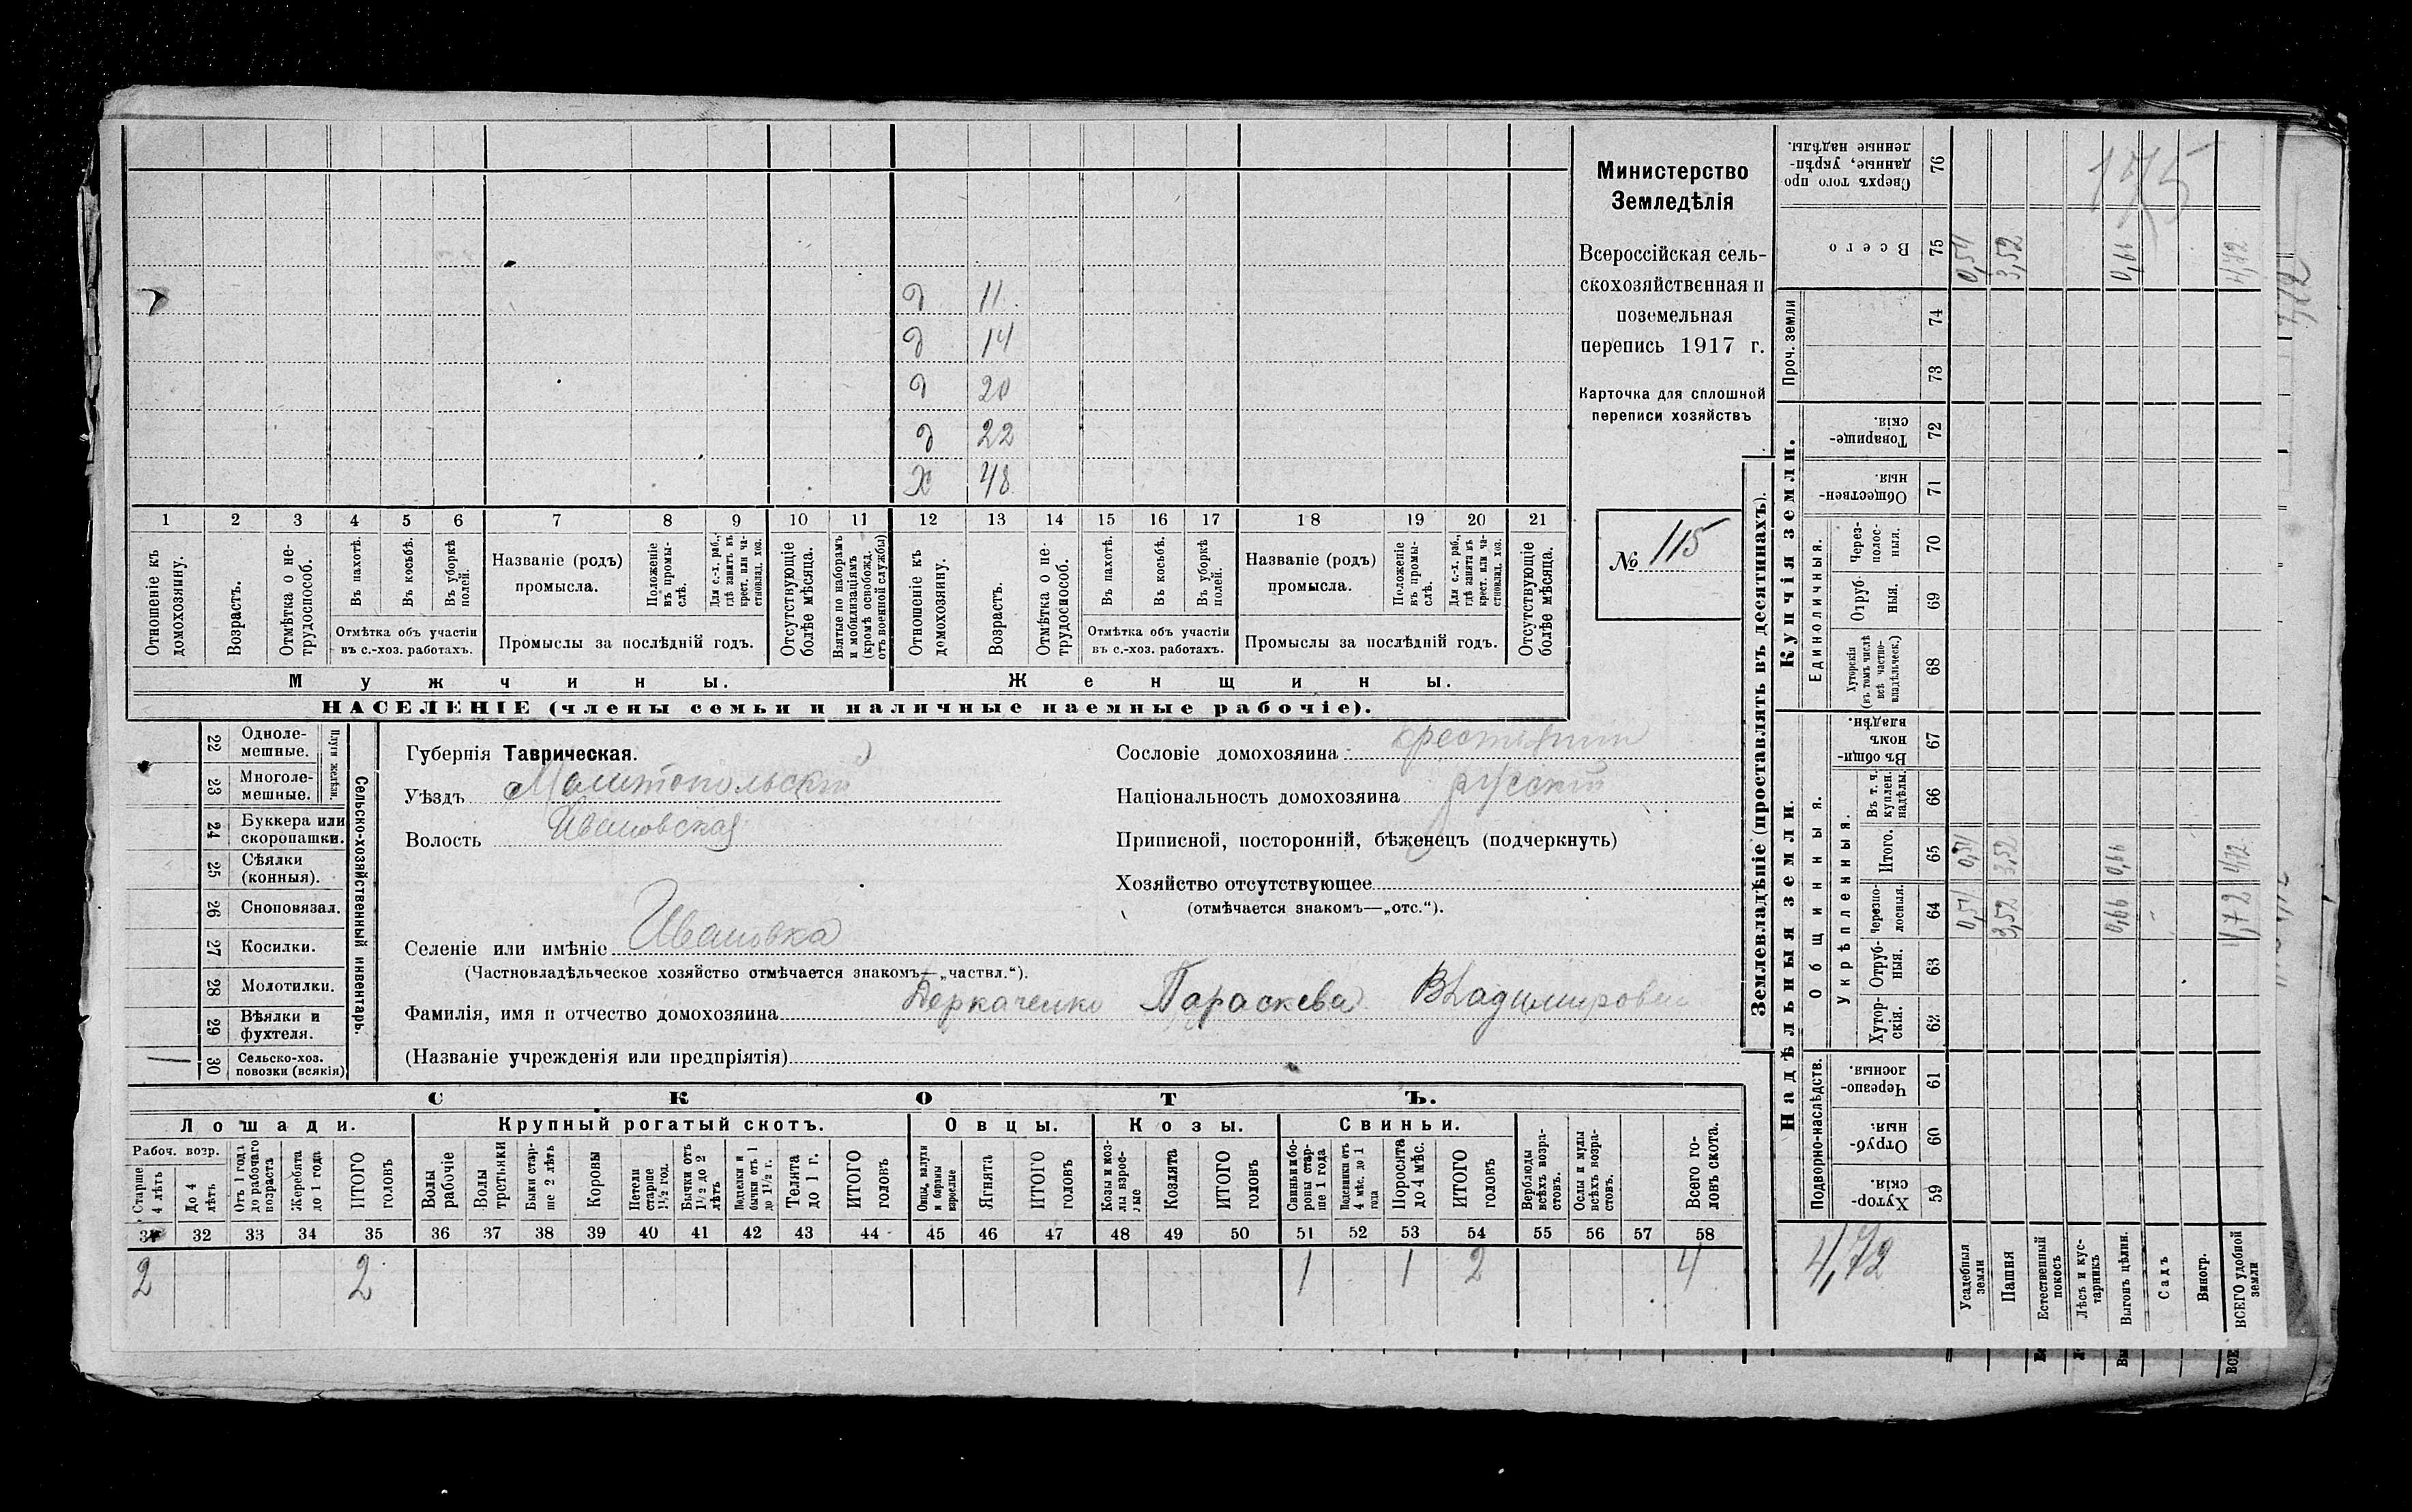 Министерство
Земледѣлія
Всероссійская сель-
скохозяйственная и
поземельная
перепись 1917 г.
Карточка для сплошной
переписи хозяйствъ
№ 115
д 11
д 14
д 20
д 22
х 48
1 2 3 4 5 6 7 8 9 10 11 12 13 14 15 16 17 18 19 20 21
Отношеніе къ домохозяину.
Возрастъ.
Отмѣтка о не-трудоспособ.
Въ пахотѣ.
Въ косьбѣ.
Въ уборкѣ полей.
Отмѣтка объ участіи
въ с.-хоз. работахъ.
Названіе (родъ)
промысла.
Положеніе въ промы-слѣ.
Для с.-х. раб., гдѣ занятъ въ крест. или ча-стновлад. хоз.
Промыслы за послѣдній годъ.
Отсутствующіе болѣе мѣсяца.
Взятые по наборамъ и мобилизаціямъ (кромѣ освобожд. отъ военной службы)
Отношеніе къ домохозяину.
Возрастъ.
Отмѣтка о не-трудоспособ.
Въ пахотѣ.
Въ косьбѣ.
Въ уборкѣ полей.
Отмѣтка объ участіи
въ с.-хоз. работахъ.
Названіе (родъ)
промысла.
Положеніе въ промы-слѣ.
Для с.-х. раб., гдѣ занята въ крест. или ча-стновлад. хоз.
Промыслы за послѣдній годъ.
Отсутствующіе болѣе мѣсяца.
Мужчины.
Женщины.
НАСЕЛЕНІЕ (члены семьи и наличные наемные рабочіе).
22 Одноле-мешные.
23 Многоле-мешные.
Плуги желѣзн.
24 Буккера или скоропашки.
25 Сѣялки (конныя).
26 Сноповязал.
27 Косилки.
28 Молотилки.
29 Вѣялки и фухтеля.
30 Сельско-хоз. повозки (всякія) 1
Сельско-хозяйственный инвентарь.
Губернія Таврическая.
Уѣздъ Мелитопольскій
Волость Ивановская
Сословіе домохозяина крестьянин
Національность домохозяина русскій
Приписной, посторонній, бѣженецъ (подчеркнуть)
Хозяйство отсутствующее
(отмѣчается знакомъ—„отс.“).
Селеніе или имѣніе Ивановка
(Частновладѣльческое хозяйство отмѣчается знакомъ—„частвл.“).
Фамилія, имя и отчество домохозяина Деркаченко Параскева Владимировна
(Названіе учрежденія или предпріятія)
СКОТЪ.
Лошади. Крупный рогатый скотъ. Овцы. Козы. Свиньи.
Рабоч. возр.
Старше 4 лѣтъ
До 4 лѣтъ
Отъ 1 года до рабочаго возраста
Жеребята до 1 года
ИТОГО головъ
Волы рабочіе
Волы третьяки
Быки стар-ше 2 лѣтъ
Коровы
Нетели старше 1½ год.
Бычки отъ 1½ до 2 лѣтъ
Подтелки и бычки отъ 1 до 1½ г.
Телята до 1 г.
ИТОГО головъ
Овцы, валухи и бараны взрослые
Ягнята
ИТОГО головъ
Козы и коз-лы взрос-лые
Козлята
ИТОГО головъ
Свиньи и бо-ровы стар-ше 1 года
Подсвинки отъ 4 мѣс. до 1 года
Поросята до 4 мѣс.
ИТОГО головъ
Верблюды всѣхъ возра-стовъ.
Ослы и мулы всѣхъ возра-стовъ.
Всего го-ловъ скота.
31 32 33 34 35 36 37 38 39 40 41 42 43 44 45 46 47 48 49 50 51 52 53 54 55 56 57 58
2 2 1 1 2 4
Землевладѣніе (проставлять въ десятинахъ).
Надѣльныя земли.
Купчія земли.
Проч. земли
Подворно-наслѣдств.
Общинныя.
Укрѣпленныя.
Единоличныя.
Сверхъ того про данные, укрѣп-ленные надѣлы. 76
Всего 75
74
73
Товарище-скія. 72
Обществен-ныя 71
Через-полос-ныя. 70
Отруб-ныя. 69
Хуторскія (въ томъ числѣ всѣ частно-владѣльческ.) 68
Въ общи номъ владѣн. 67
Въ т. ч. куплен. надѣлы. 66
Итого. 65
Черезпо-лосныя. 64
Отруб-ныя. 63
Хутор-скія. 62
Черезпо-лосныя. 61
Отруб-ныя. 60
Хутор-скія. 59
175
0,54 3,52 0,66 4,72
0,54 3,52 0,66 4,72
0,54 3,52 0,66 4,72
4,72
Усадебныя земли
Пашня
Естественный покосъ
Лѣсъ и кус-тарникъ
Выгонъ цѣлин.
Садъ
Виногр.
ВСЕГО удобной земли